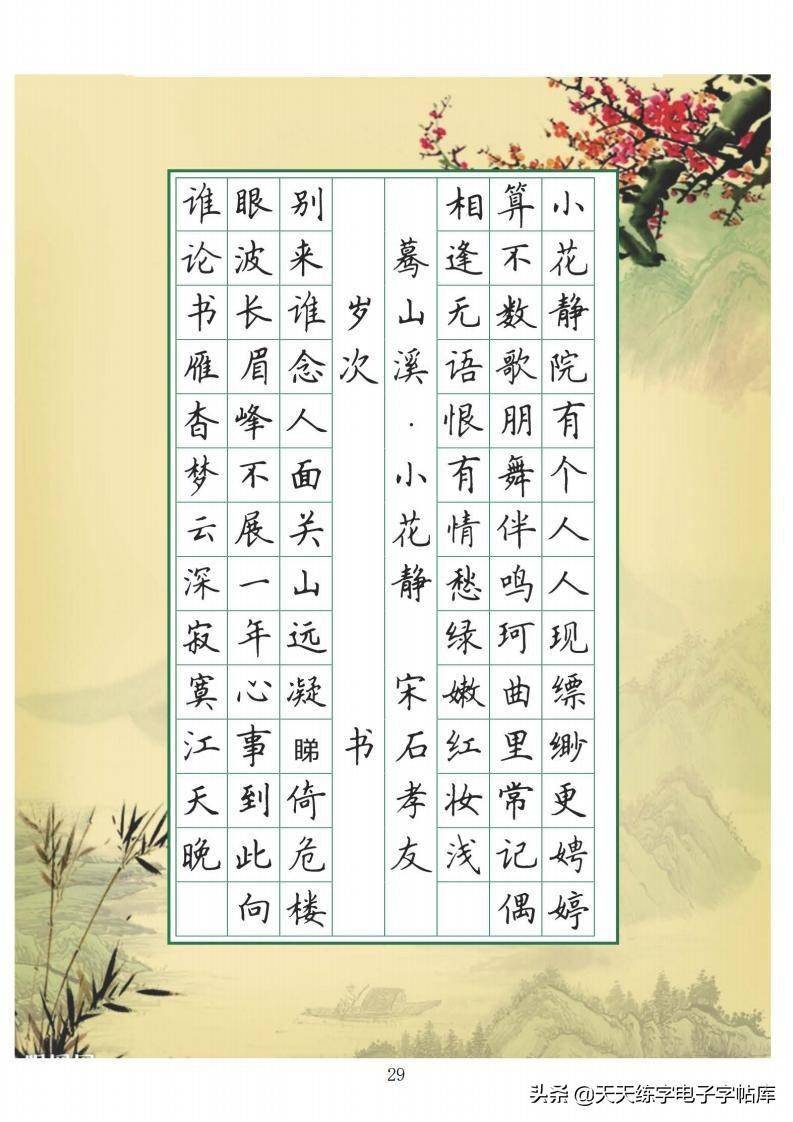 小花静院有个人人现缥缈更娉婷
算不数歌朋舞伴鸣珂曲里常记偶
相逢无语恨有情愁绿嫩红妆浅
蓦山溪·小花静 宋石孝友
岁次 书
别来谁念人面关山远凝睇倚危楼
眼波长眉峰不展一年心事到此向
谁论书雁杳梦云深寂寞江天晚
29
头条 @天天练字电子字帖库